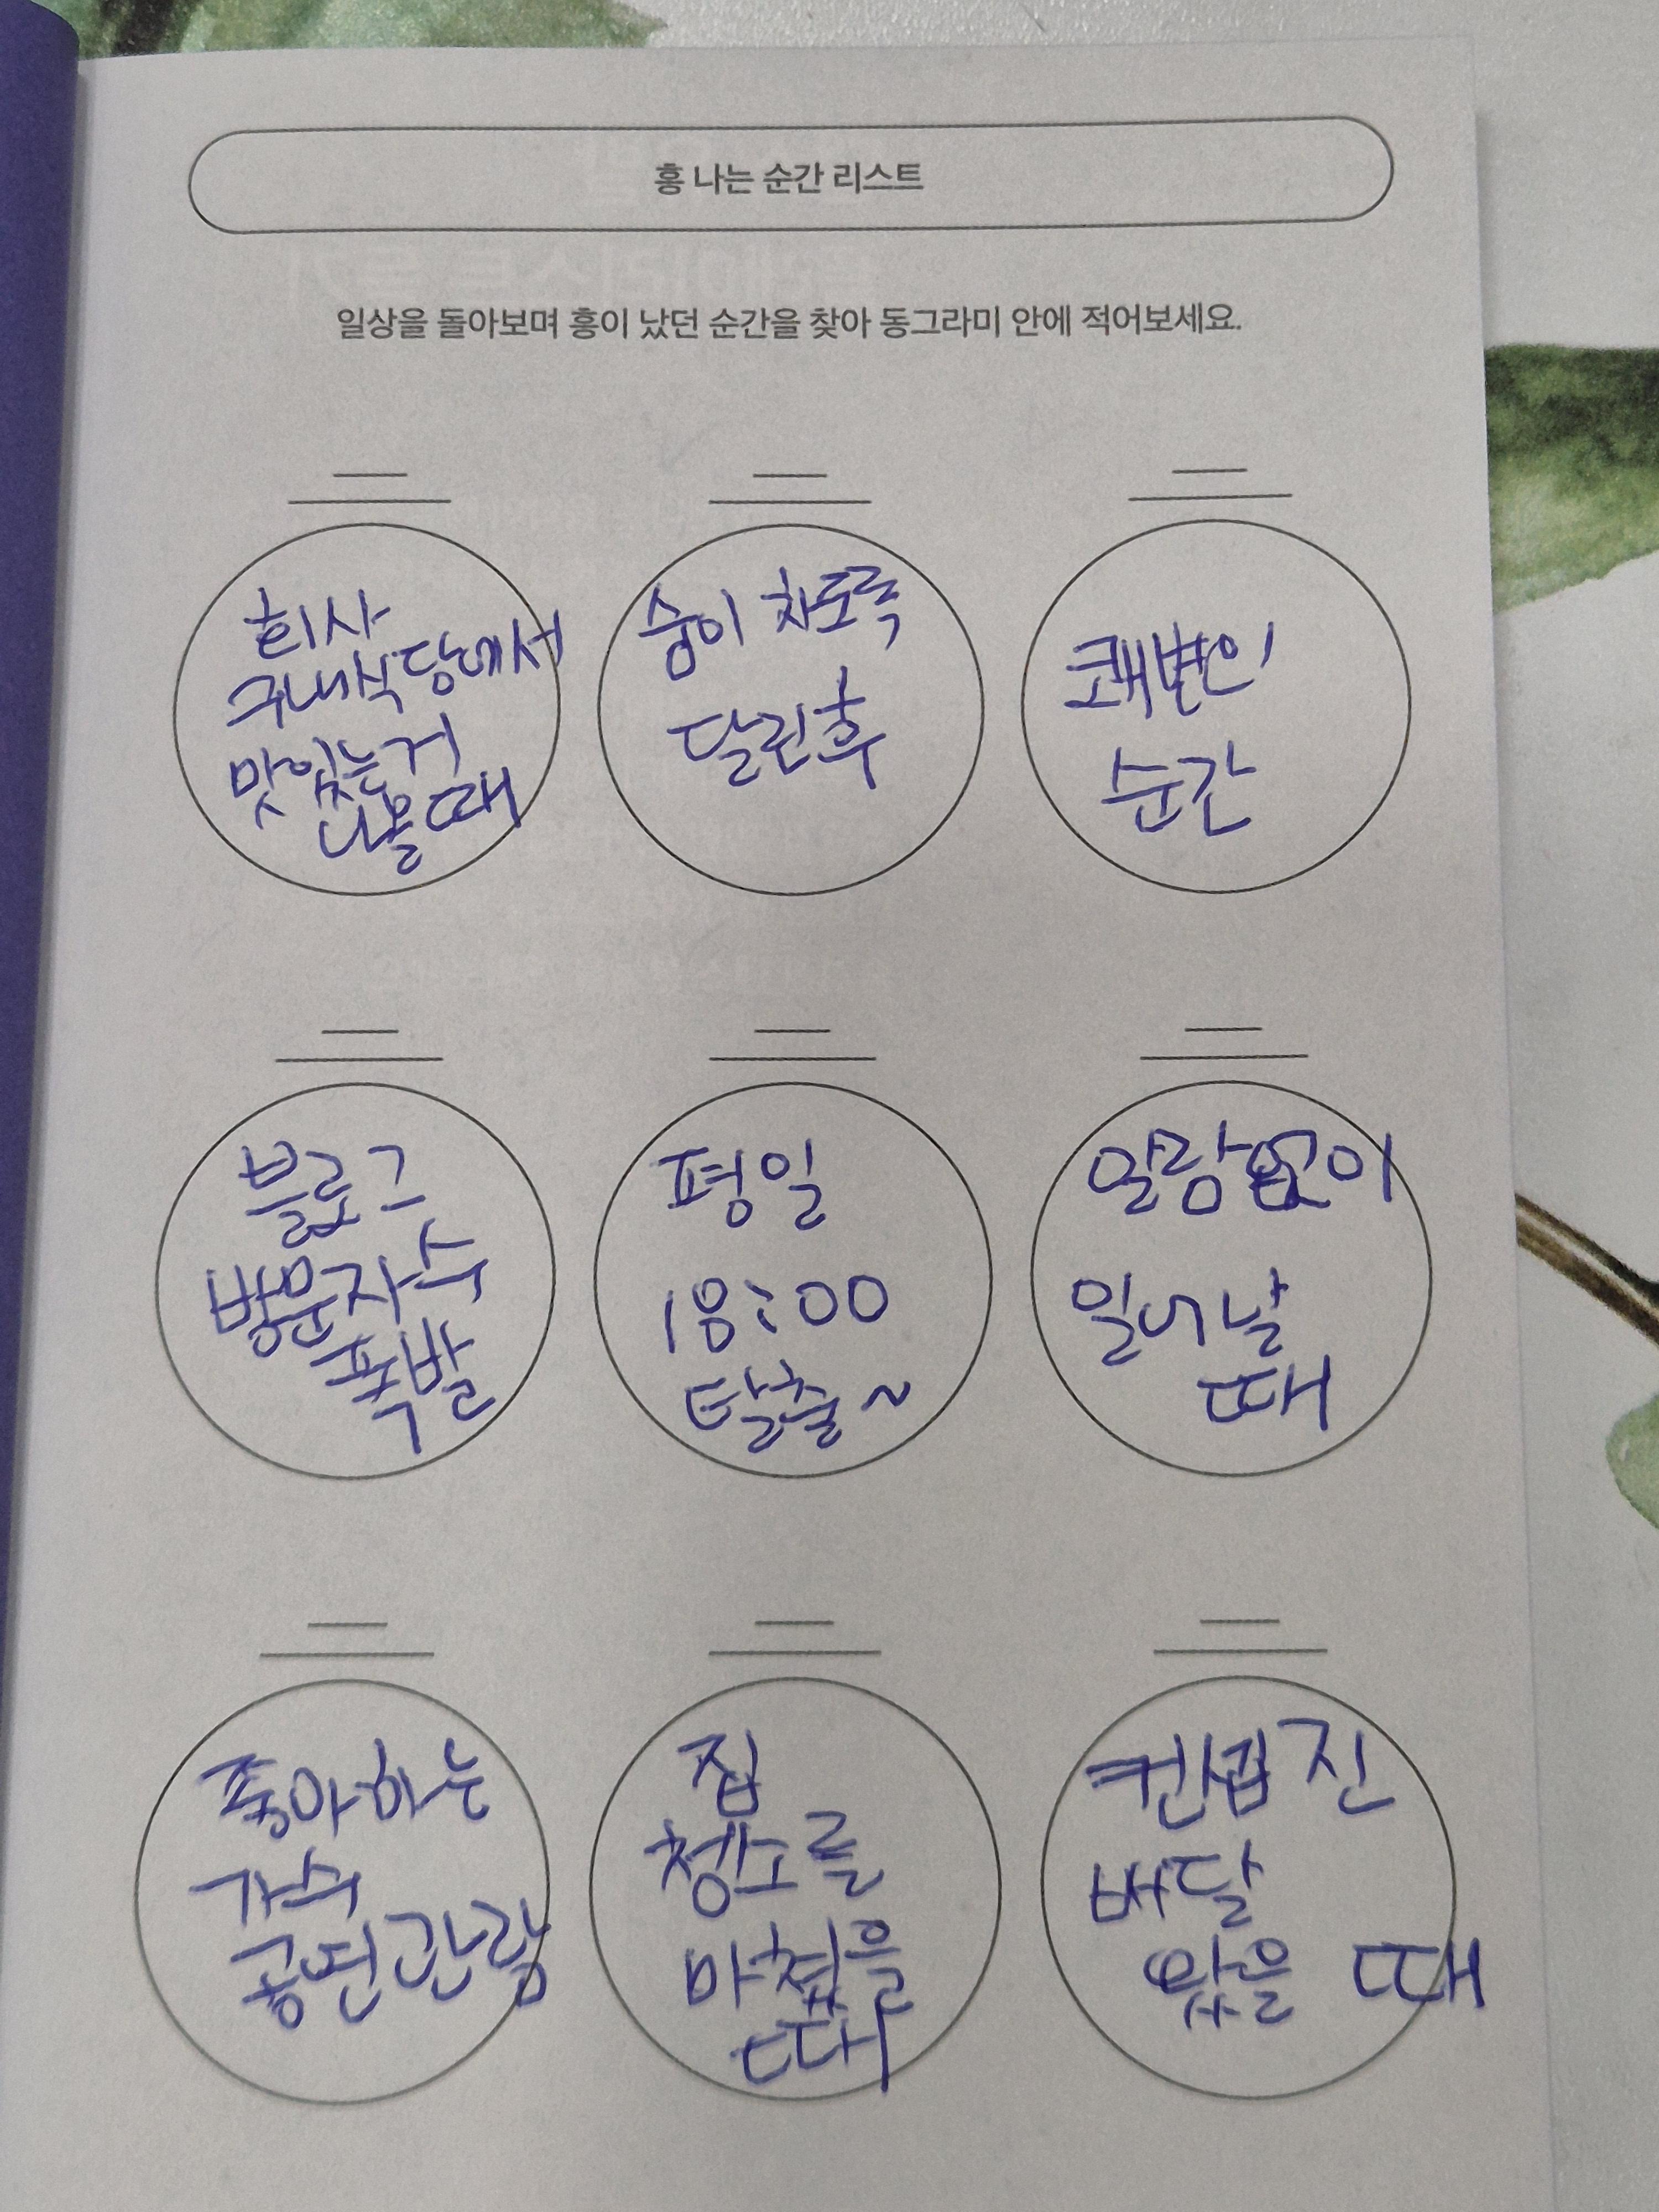 흥 나는 순간 리스트
일상을 돌아보며 흥이 났던 순간을 찾아 동그라미 안에 적어보세요.
회사
구내식당에서
맛있는거
나올때
숨이 차도록
달린후
쾌변의
순간
블로그
방문자수
폭발
평일
18:00
탈출~
알람없이
일어날
때
좋아하는
가수
공연관람
집
청소를
마쳤을
때
컨셉진
배달
왔을 때